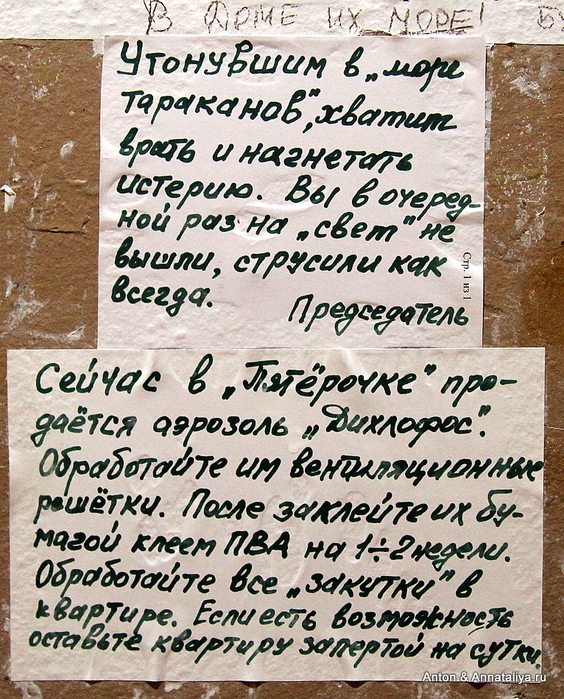 В ДОМЕ ИХ МОРЕ!
Утонувшим в „море
тараканов”, хватит
врать и нагнетать
истерию. Вы в очеред-
ной раз на „свет” не
вышли, струсили как
всегда.
Председатель
Стр. 1 из 1
Сейчас в „Пятёрочке” про-
даётся аэрозоль „Дихлофос”.
Обработайте им вентиляционные
решётки. После заклейте их бу-
магой клеем ПВА на 1÷2 недели.
Обработайте все „закутки” в
квартире. Если есть возможность
оставьте квартиру запертой на сутки.
Anton & Annataliya.ru